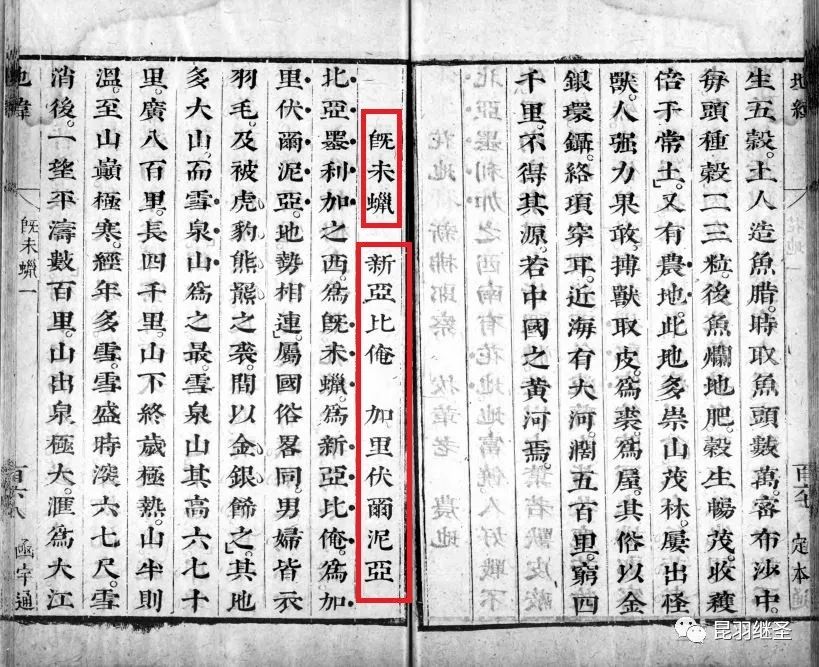 地緯
生五穀。土人造魚腊。時取魚頭數萬。密布沙中。
每頭種穀二三粒。後魚爛地肥。穀生暢茂。收穫
倍于常土。又有農地。此地多崇山茂林。屢出怪
獸。人强力果敢。搏獸取皮。爲裘爲屋。其俗以金
銀環鑷。絡項穿耳。近海有大河。濶五百里。窮四
千里。不得其源。若中國之黃河焉。
定本
函宇通
旣未蠟 新亞比俺 加里伏爾泥亞
北亞墨利加之西。爲旣未蠟。爲新亞比俺。爲加
里伏爾泥亞。地勢相連。屬國俗畧同。男婦皆衣
羽毛。及被虎豹熊羆之裘。間以金銀飾之。其地
多大山。而雪泉山爲之最。雪泉山其高六七十
里。廣八百里。長四千里。山下終歲極熱。山半則
溫。至山巔極寒。經年多雪。雪盛時深六七尺。雪
消後。一望平濤數百里。山出泉極大。滙爲大江
地緯
旣未蠟一
百六八
函宇通
昆羽继圣